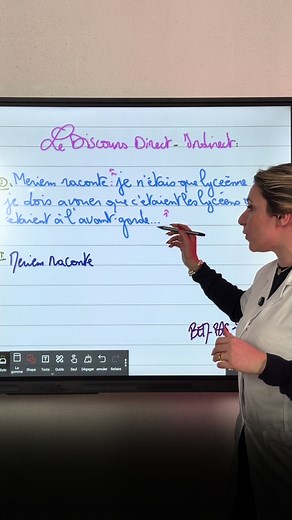 Le Discours Direct - Indirect:
Meriem raconte: " je n'étais que lycéenne
je dois avouer que c'étaient les lycéens
étaient à l'avant-garde... "
Meriem raconte
Stylo La gomme Shape Texte Outils Seul Dégager annuler Refaire